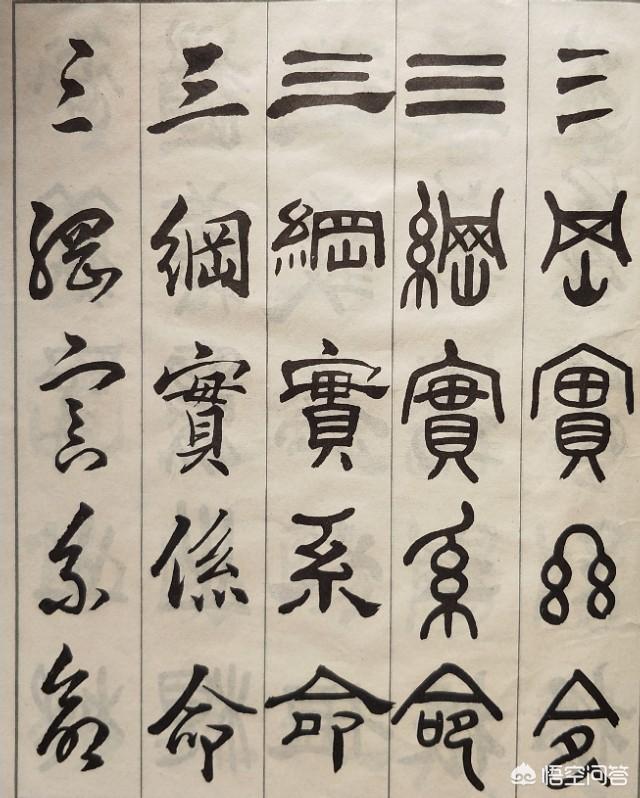 三岡實系命
三綱實系命
三綱實系命
三綱實係命
三綱實系命
悟空问答